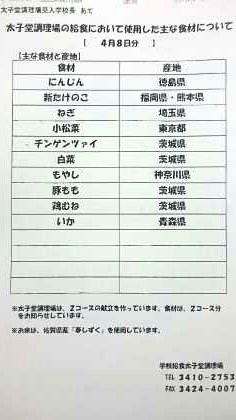 太子堂調理場受入学校長 あて
太子堂調理場の給食において使用した主な食材について
[ 4月8日分 ]
【主な食材と産地】
食材 産地
にんじん 徳島県
新たけのこ 福岡県・熊本県
ねぎ 埼玉県
小松菜 東京都
チンゲンツァイ 茨城県
白菜 茨城県
もやし 神奈川県
豚もも 茨城県
鶏むね 茨城県
いか 青森県
※太子堂調理場は、Zコースの献立を作っています。食材は、Zコース分
をお知らせしています。
※お米は、佐賀県産「夢しずく」を使用しています。
学校給食太子堂調理場
TEL 3410-2753
FAX 3424-4007